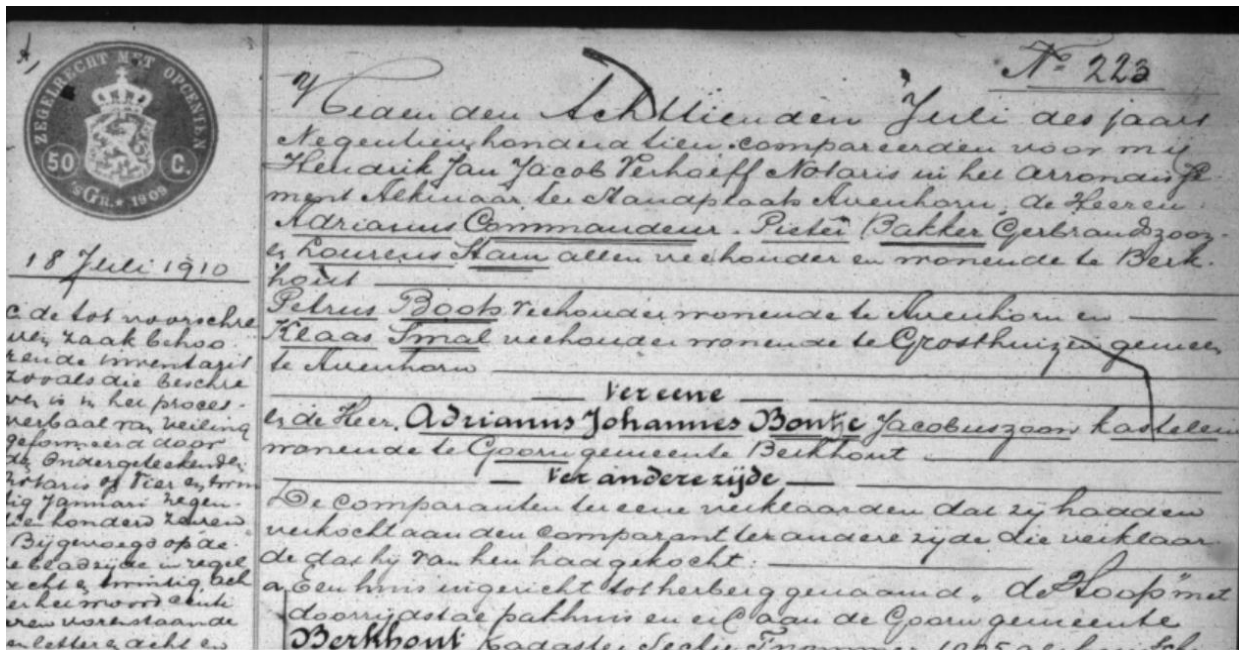 ZEGELRECHT MET OPCENTEN
50 C.
'sGR. * 1909
18 Juli 1910
c de tot voorschre
ven zaak behoo
rende inventaris
zooals die beschre
ven is in het proces-
verbaal van veiling
geformeerd door
de ondergeteekende
Notaris op vier en twin
tig Januari negen
tien honderd zeven
Bijgevoegd op de
e bladzijde in regel
acht en twintig, ach
ter het woord
ren vorenstaande
en letter c, acht en
No 223
Heden den Achttienden Juli des jaars
Negentienhonderd tien compareerden voor mij
Hendrik Jan Jacob Verhoeff Notaris in het Arrondisse
ment Alkmaar ter Standplaats Avenhorn, de Heeren
Adrianus Commandeur. Pieter Bakker Gerbrandszoon
en Lourens Stam allen veehouder en wonende te Berk-
hout
Petrus Boots veehouder wonende te Avenhorn en
Klaas Smal veehouder wonende te Grosthuizen gemeen
te Avenhorn
ter eene
en de Heer Adrianus Johannes Bontje Jacobuszoon kastelein
wonende te Goorn gemeente Berkhout
ter andere zijde
De comparanten ter eene verklaarden dat zij hadden
verkocht aan den comparant ter andere zijde die verklaar
de dat hij van hen had gekocht.
a, Een huis ingericht tot herberg genaamd „de Hoop" met
doorrijdstal pakhuis en erf aan de Goorn gemeente
Berkhout Kadaster Sectie F nommer 1095